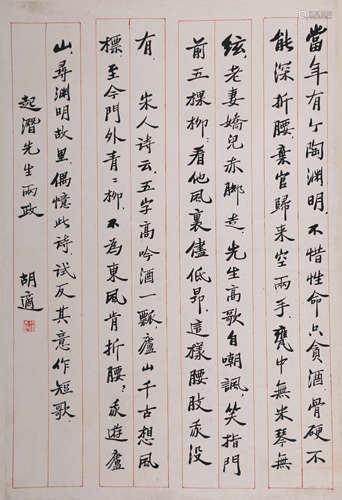 當年有个陶淵明，不惜性命只貪酒，骨硬不
能深折腰，棄官歸来空兩手，甕中無米琴無
絃，老妻嬌兒赤脚走，先生高歌自嘲諷，笑指門
前五棵柳，看他風裏儘低昂，這樣腰肢我没
有。 宋人诗云，五字高吟酒一瓢，廬山千古想風
標，至今門外青〻柳，不為東風肯折腰，我遊廬
山，尋淵明故里，偶憶此詩，試反其意作短歌，
起潛先生兩政
胡適